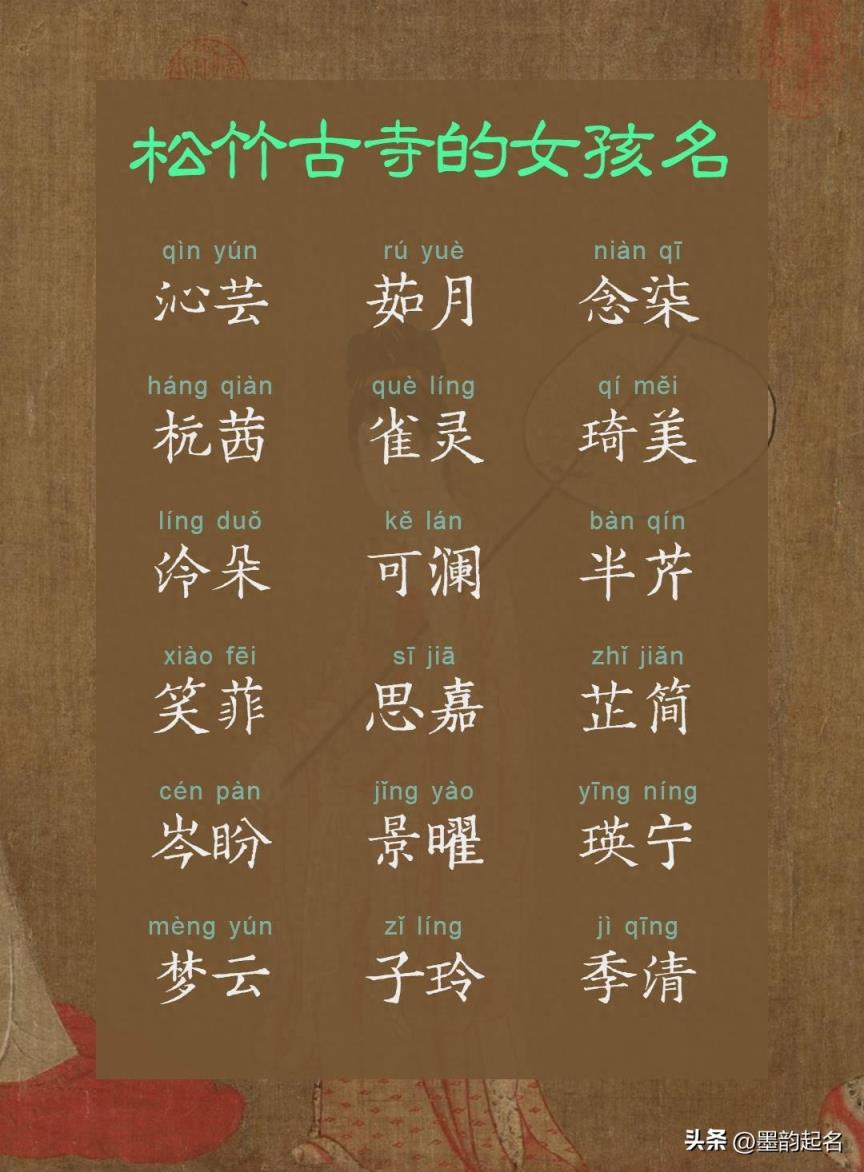 松竹古寺的女孩名
qìn yún rú yuè niàn qī
沁芸 茹月 念柒
háng qiàn què líng qí měi
杭茜 雀灵 琦美
líng duǒ kě lán bàn qín
泠朵 可澜 半芹
xiào fēi sī jiā zhǐ jiǎn
笑菲 思嘉 芷简
cén pàn jǐng yào yīng níng
岑盼 景曜 瑛宁
mèng yún zǐ líng jì qīng
梦云 子玲 季清
头条 @墨韵起名